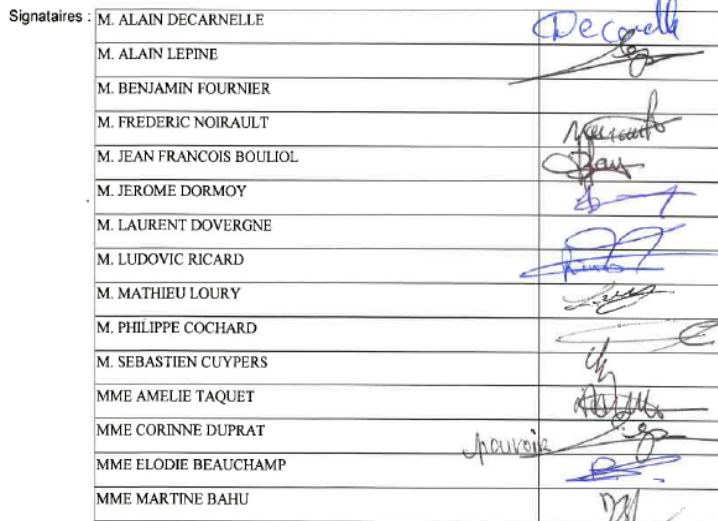 Signataires : M. ALAIN DECARNELLE Decarnelle
M. ALAIN LEPINE
M. BENJAMIN FOURNIER
M. FREDERIC NOIRAULT Noirault
M. JEAN FRANCOIS BOULIOL
M. JEROME DORMOY
M. LAURENT DOVERGNE
M. LUDOVIC RICARD
M. MATHIEU LOURY
M. PHILIPPE COCHARD
M. SEBASTIEN CUYPERS
MME AMELIE TAQUET
MME CORINNE DUPRAT pouvoir
MME ELODIE BEAUCHAMP
MME MARTINE BAHU